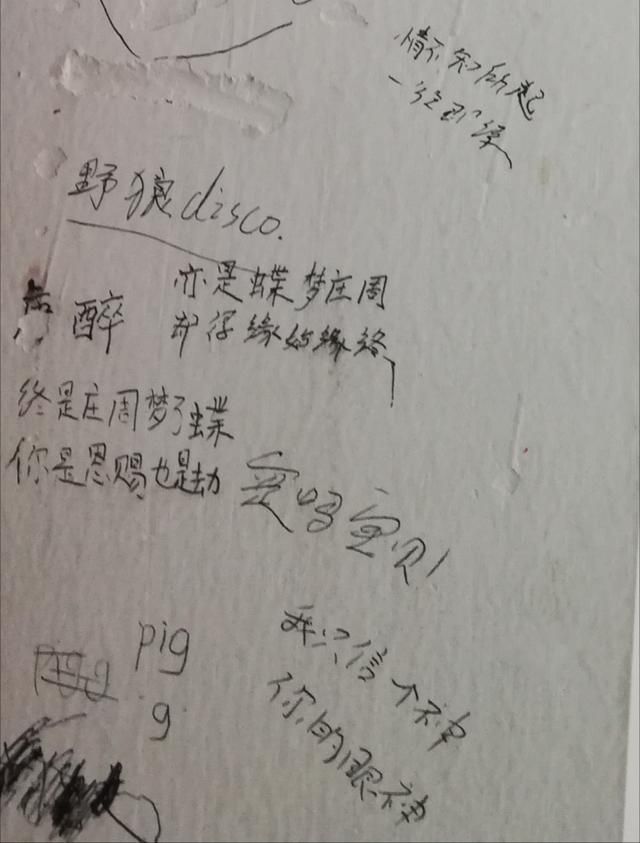 情不知所起
一往
野狼disco.
亦是蝶梦庄周
醉
却得缘始缘终
终是庄周梦了蝶
你是恩赐也是劫
爱吗宝贝!
pig
g
我只信个神
你的眼神